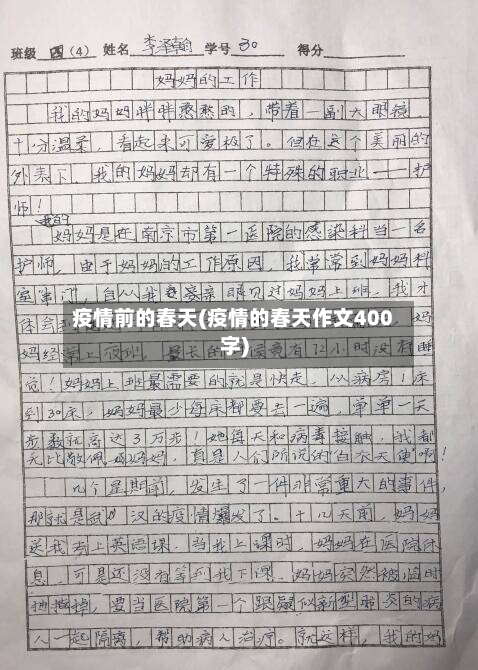 班级 四(4) 姓名 李泽翰 学号 30 得分
妈妈的工作
我的妈妈胖胖憨憨的，带着一副大眼镜，
十分温柔，看起来可爱极了。但在这个美丽的
外表下，我的妈妈却有一个特殊的职业——护
师！
我的
妈妈是在南京市第一医院的感染科当一名
护师，由于妈妈的工作原因，我常常到妈妈科
室串门，自从我亲眼见过妈妈上班，我才
疫情前的春天(疫情的春天作文400
字)
体会到
妈经常上夜班，最长的时候竟有12小时没有睡
觉！妈妈上班最需要的就是快走，从病房1床
到30床，妈妈最少每床都要去一遍，单单一天
步数就高达3万步！她每天和病毒接触，我都
无比敬佩妈妈，真是人们所说的“白衣天使”啊！
几个星期前，发生了一件非常重大的事件，
那就是武汉的疫情爆发了。十几天前，妈妈
送我去上英语课，当我上课时，妈妈在医院休
息，可是还没有等到我下课，妈妈突然被临时
地，要当医院第一个跟疑似新型肺炎的病
人一起隔离，帮助病人治疗。就这样，我的妈